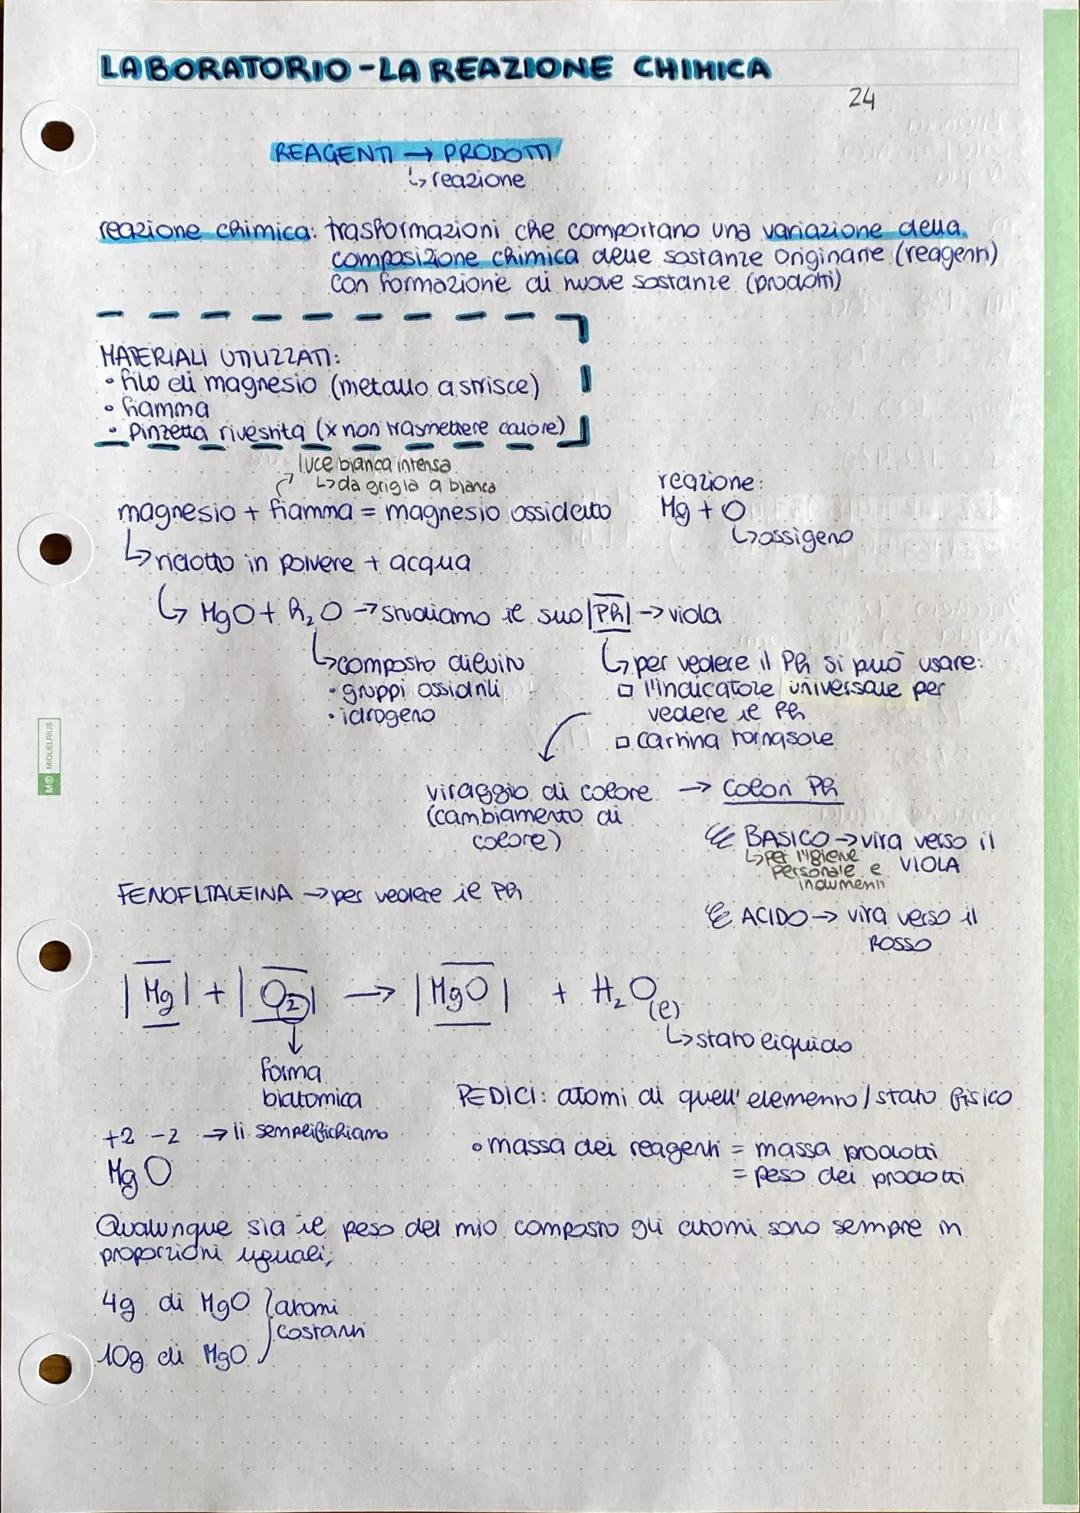 LABORATORIO - LA REAZIONE CHIMICA
24
REAGENTI → PRODOTTI
↳ reazione
reazione chimica: trasformazioni che comportano una variazione della
composizione chimica delle sostanze originarie (reagenti)
con formazione di nuove sostanze (prodotti)
MATERIALI UTILIZZATI:
• filo di magnesio (metallo a strisce)
• fiamma
• Pinzetta rivestita (x non trasmettere calore)
luce bianca intensa
↳ da grigia a bianca
magnesio + fiamma = magnesio ossidato
reazione:
Mg + O
↳ ossigeno
↳ ridotto in polvere + acqua
↳ MgO + h₂O → studiamo il suo |Ph| → viola
↳ composto diluito
• gruppi ossidrili
• idrogeno
↳ per vedere il Ph si può usare:
□ l'indicatore universale per
vedere il Ph
□ cartina tornasole
viraggio di colore → colori Ph
(cambiamento di
colore)
BASICO → vira verso il
VIOLA
↳ per l'igiene
personale e
indumenti
FENOFLTALEINA → per vedere il Ph
ACIDO → vira verso il
ROSSO
|Mg| + |O₂| → |MgO| + H₂O(l)
↳ stato liquido
↓
forma
biatomica
PEDICI: atomi di quell'elemento / stato fisico
+2 -2 → li semplifichiamo
MgO
• massa dei reagenti = massa prodotti
= peso dei prodotti
Qualunque sia il peso del mio composto gli atomi sono sempre in
proporzioni uguali;
4g di MgO } atomi
costanti
10g di MgO
M® MIQUELRIUS